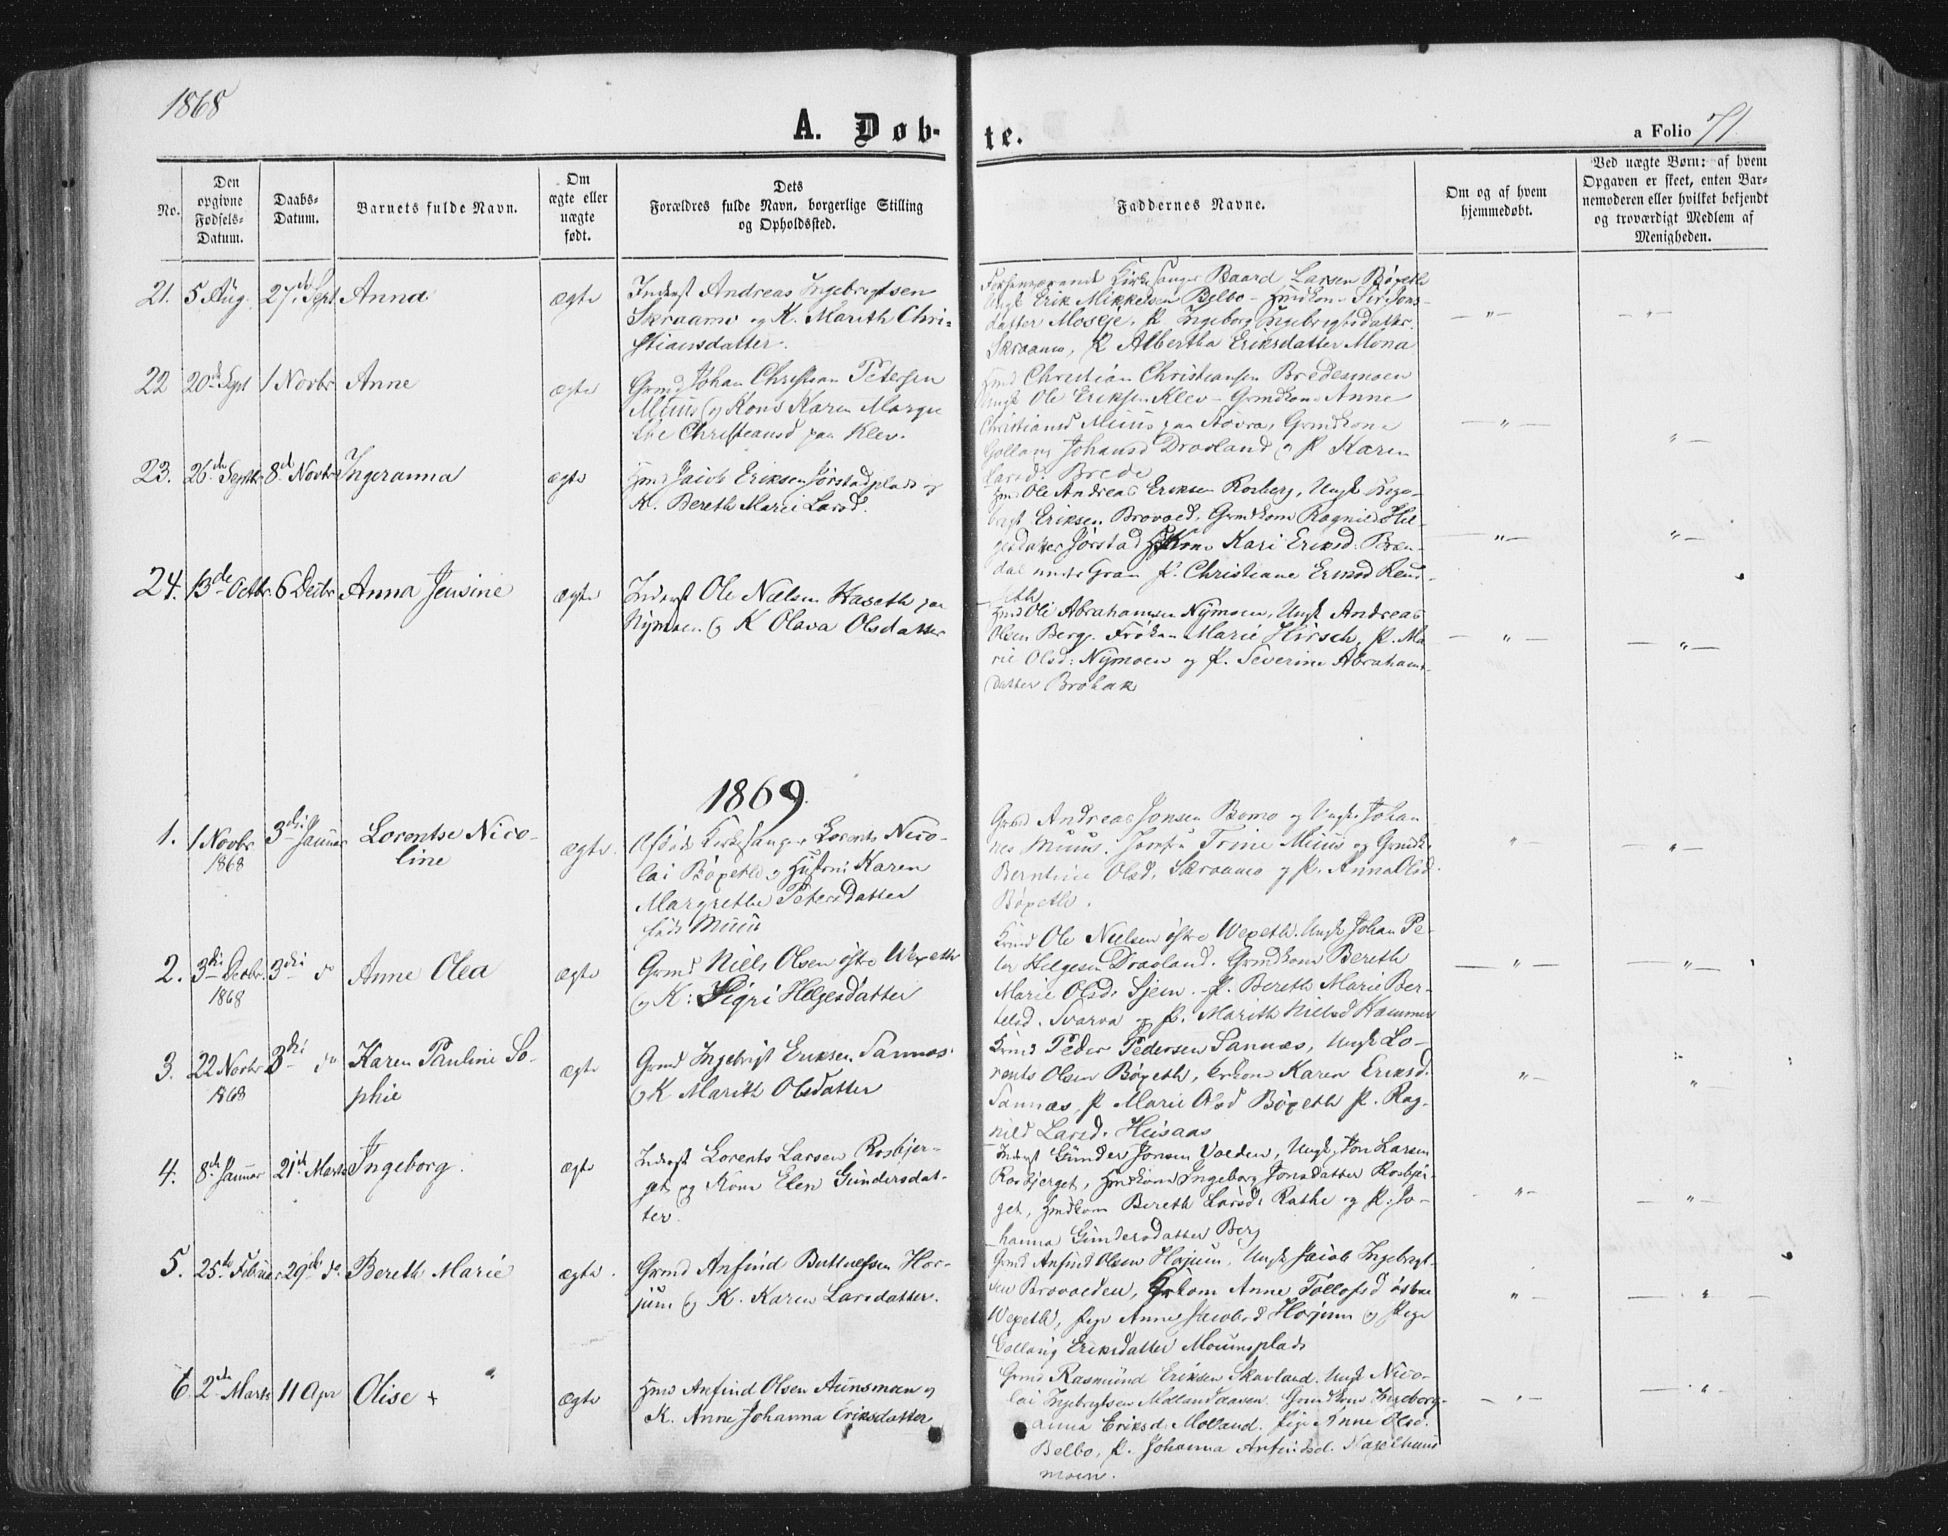 1868
A. Døb-
te.
a Folio 71.
No.
Den
opgivne
Fødsels-
Datum.
Daabs-
Datum.
Barnets fulde Navn.
Om
ægte eller
uægte
født.
Dets
Forældres fulde Navn, borgerlige Stilling
og Opholdssted.
Faddernes Navne.
Om og af hvem
hjemmedøbt.
Ved uægte Børn: af hvem
Opgaven er skeet, enten Bar-
nemoderen eller hvilket bekjendt
og troværdigt Medlem af
Menigheden.
21. 5 Aug. 27de Sept Anna ægte
Inderst Andreas Ingebrigtsen
Skraamo og K. Marith Chri-
stiansdatter.
Kirkesanger Baard Larsen Bøgeth
Ungk Erik Mikkelsen Belbo
datter Moseje. P. Ingeborg Ingebrigtsdatter
Skraamo, P Albertha Eriksdatter Mona
22 20de Sept 1 Novbr Anne ægte
Grmd Johan Christian Petersen
Muus og Kone Karen Margre
the Christiansd paa Klev.
Hmd Christian Christiansen Bredesmoen
Ungk Ole Eriksen Klev - Grmdkone Anne
Christiansd Muus paa Grmdkone
Gollaug Johansd Dravland og P Karen
Larsd: Brede
23. 26de Septbr 8de Novbr Ingeranna ægte
Hmd Jacob Eriksen Jørstadplads og
K. Bereth Marei Larsd.
Hmd Ole Andreas Eriksen Rosberg, Ungk Inge-
brigt Eriksen Brovold, Grmdkone Ragnild Hel-
gesdatter Jørstad Kone Kari Eriksd: Bren-
dal under Gran P. Christiane
24. 13de Octbr. 6 Decbr Anna Jensine ægte
Inderst Ole Nielsen Haseth paa
Nymoen og K Olava Olsdatter
Hmd Ole Abrahamsen Nymoen, Ungk Andreas
Olsen Berg. Frøken Marie Hirsch, P. Ma
rie Olsd: Nymoen og P. Severine Abrahams
datter Brohak
1869.
1. 1 Novbr 3die Januar Lorentse Nico- ægte.
1868 line
Kirkesanger Lorents Nico-
lai Bøgeth og Hustru Karen
Margrethe Petersdatter
født Muus
Grmd Andreas Jonsen Bomo og Ungk. Johan
nes Muus. Jomfru Trine Muus og Grmdk.
Berntine Olsd. Skraamo og P. Anna Olsd.
Bøgeth.
2. 3die Decbr 3die do Anne Olea ægte
1868
Grmd Niels Olsen østre Wegeth
og K: Sigri Helgesdatter
Grmd Ole Nielsen østre Wegeth. Ungk Johan Pe-
ter Helgesen Dravland. Grmdkone Bereth
Marie Olsd: Sjem. P. Bereth Marie Ber-
telsd. Svarva og P. Marith Nielsd Hammer
3. 22 Novbr 3die do Karen Pauline So- ægte
1868 phie
Grmd Ingebrigt Eriksen Sannæs
og K Marith Olsdatter
Grmd Peder Pedersen Sannæs, Ungk Lo-
rents Olsen Bøgeth, Grkone Karen Eriksd.
Sannæs, P Marie Olsd Bøgeth P. Rag-
nild Larsd: Heisaas
4. 8de Januar 21de Marts Ingeborg. ægte
Inderst Lorents Larsen Rosbjer-
get og Kone Elen Gundersdat-
ter.
Inderst Gunder Jonsen Volden, Ungk Jon Larsen
Rosbjerget, Hmdkone Ingeborg Jonsdatter Rosbjer-
get, Hmdkone Bereth Larsd: Rathe og P: Jo-
hanna Gundersdatter Berg
5. 25de Februar 29de do Bereth Marie ægte.
Grmd Anfind Hor-
jum og K. Karen Larsdatter.
Grmd Anfind Olsen Horjum. Ungk Jacob Ingebrigt-
sen Brovolden, Grkone Anne Tollefsd østre
Wegeth, Pige Anne Jacobsd Horjum og Pige
Gollaug Eriksdatter Moumsplads
6. 2den Marts 11 Apr Olise + ægte
Hmd Anfind Olsen Aunsmoen og
K. Anne Johanna Eriksdatter
Grmd Rasmund Eriksen Skavland. Ungk Nico-
lai Ingebrigtsen Grmdkone Ingeborg-
anna Eriksd. Molland. Pige Anne Olsd.
Belbo, P. Johanna Anfindsd.
moen.